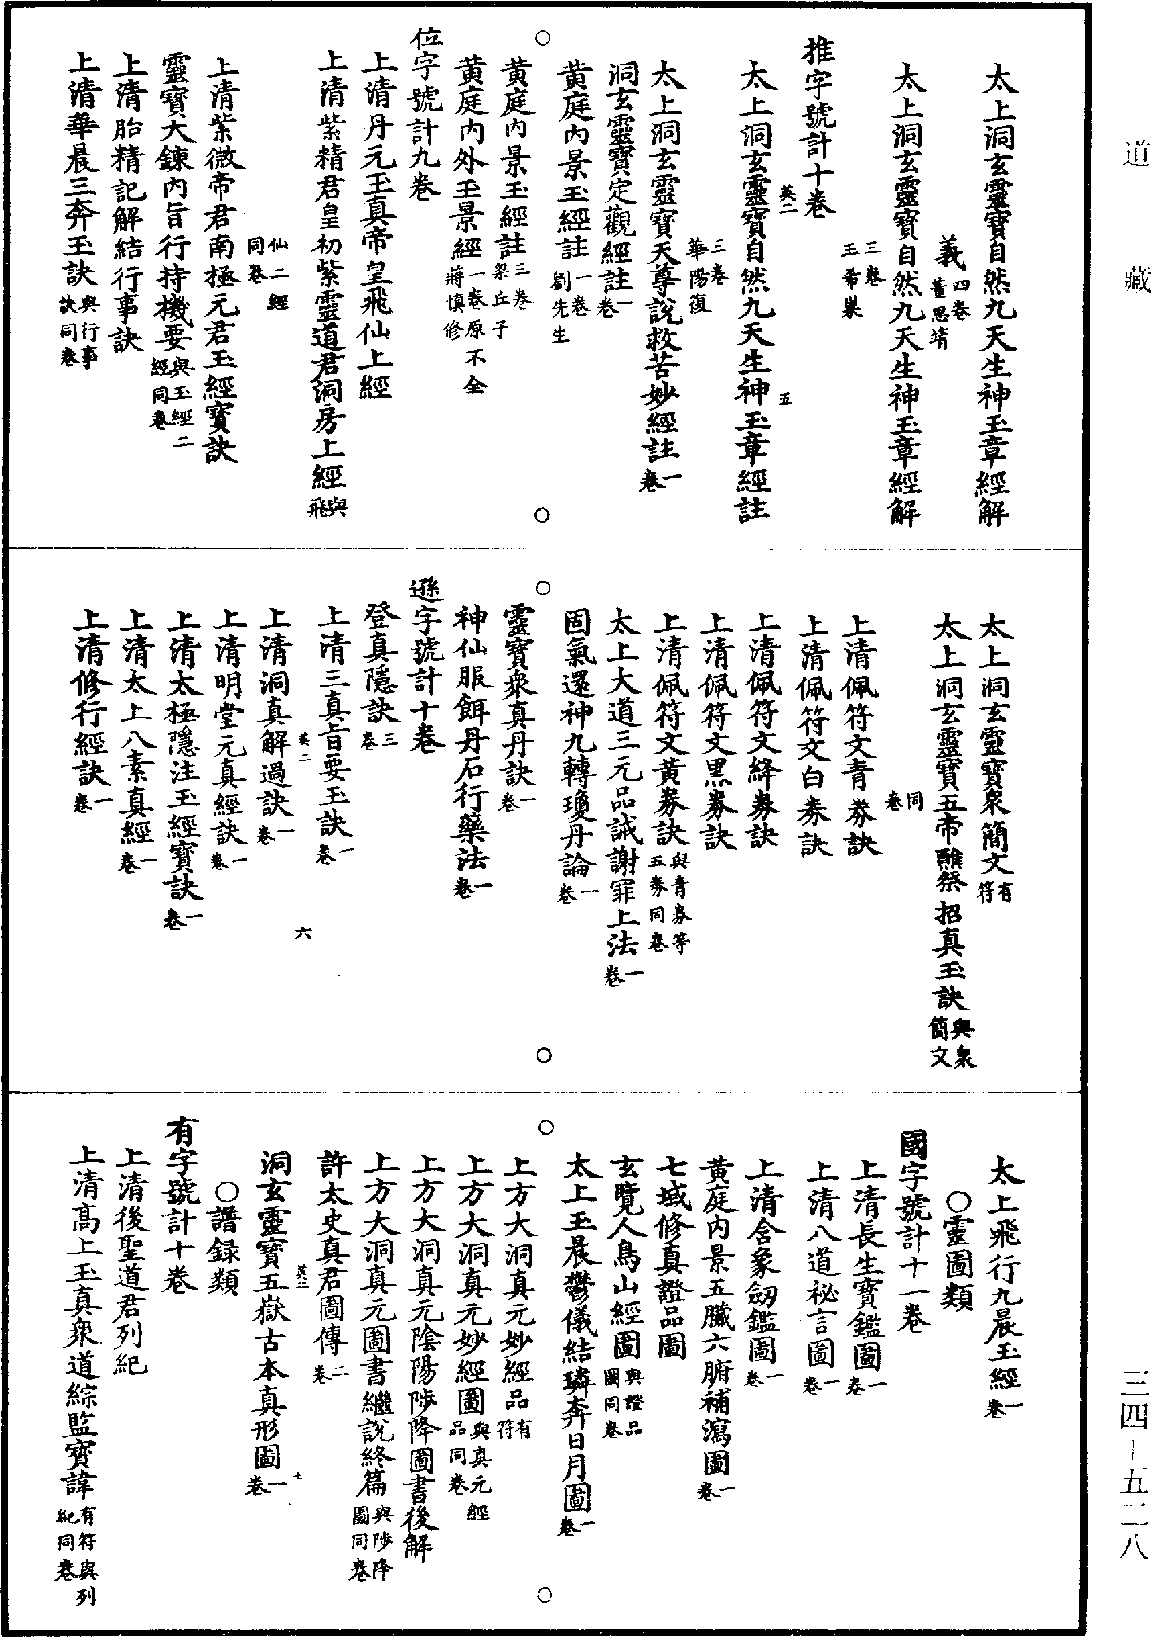 道藏
太上洞玄靈寶自然九天生神玉章經解
義四卷董思靖
太上洞玄靈寶自然九天生神玉章經解
三卷王希巢
推字號計十卷
英二
五
太上洞玄靈寶自然九天生神玉章經註
三卷華陽復
太上洞玄靈寶天尊說救苦妙經註一卷
洞玄靈寶定觀經註一卷
黃庭內景玉經註一卷劉先生
黃庭內景玉經註三卷梁丘子
黃庭內外玉景經一卷原不全蔣慎修
位字號計九卷
上清丹元玉真帝皇飛仙上經
上清紫精君皇初紫靈道君洞房上經與飛
仙二經同卷
上清紫微帝君南極元君玉經寶訣
靈寶大鍊內旨行持機要與玉經二經同卷
上清胎精記解結行事訣
上清華晨三奔玉訣與行事訣同卷
太上洞玄靈寶衆簡文有符
太上洞玄靈寶五帝醮祭招真玉訣與衆簡文
同卷
上清佩符文青券訣
上清佩符文白券訣
上清佩符文絳券訣
上清佩符文黑券訣
上清佩符文黃券訣與青券等五券同卷
太上大道三元品誡謝罪上法一卷
固氣還神九轉瓊丹論一卷
靈寶衆真丹訣一卷
神仙服餌丹石行藥法一卷
遜字號計十卷
登真隱訣三卷
上清三真旨要玉訣一卷
英二
六
上清洞真解過訣一卷
上清明堂元真經訣一卷
上清太極隱注玉經寶訣一卷
上清太上八素真經一卷
上清修行經訣一卷
太上飛行九晨玉經一卷
○靈圖類
國字號計十一卷
上清長生寶鑑圖一卷
上清八道祕言圖一卷
上清含象劒鑑圖一卷
黃庭內景五臟六腑補瀉圖一卷
七域修真證品圖
玄覽人鳥山經圖與證品圖同卷
太上玉晨鬱儀結璘奔日月圖一卷
上方大洞真元妙經品有符
上方大洞真元妙經圖與真元經品同卷
上方大洞真元陰陽陟降圖書後解
上方大洞真元圖書繼說終篇與陟降圖同卷
許太史真君圖傳二卷
英二
七
洞玄靈寶五嶽古本真形圖一卷
○譜録類
有字號計十卷
上清後聖道君列紀
上清高上玉真衆道綜監寶諱有符與列紀同卷
三四-五二八